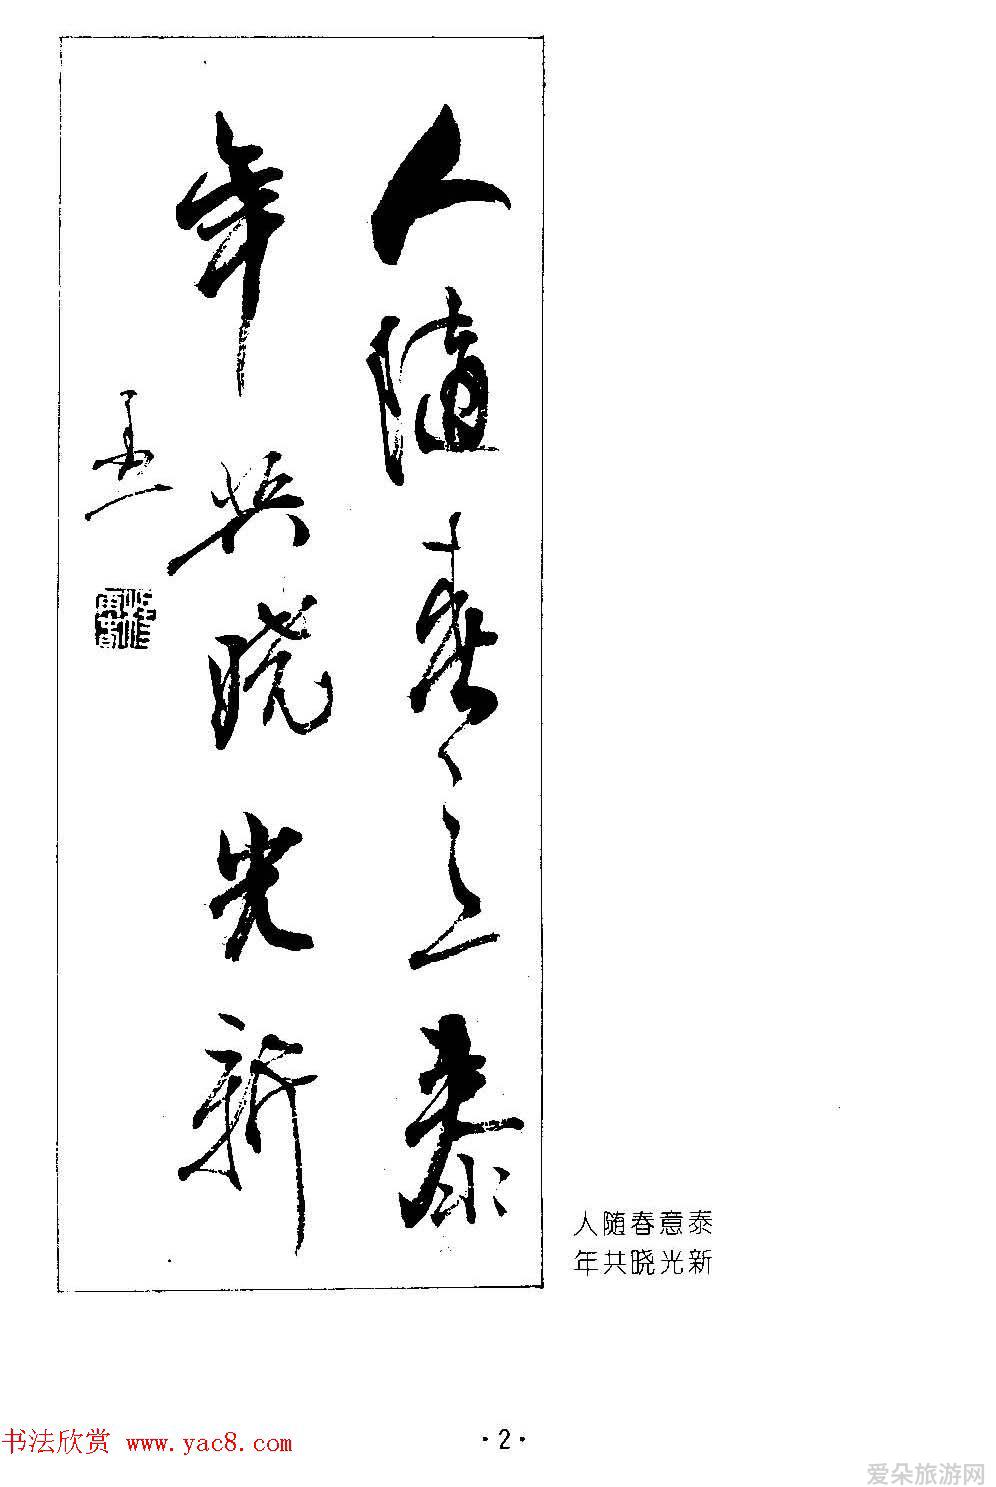 人随春意泰
年共晓光新
人随春意泰
年共晓光新
·2·
书法欣赏 www.yac8.com
爱朵旅游网